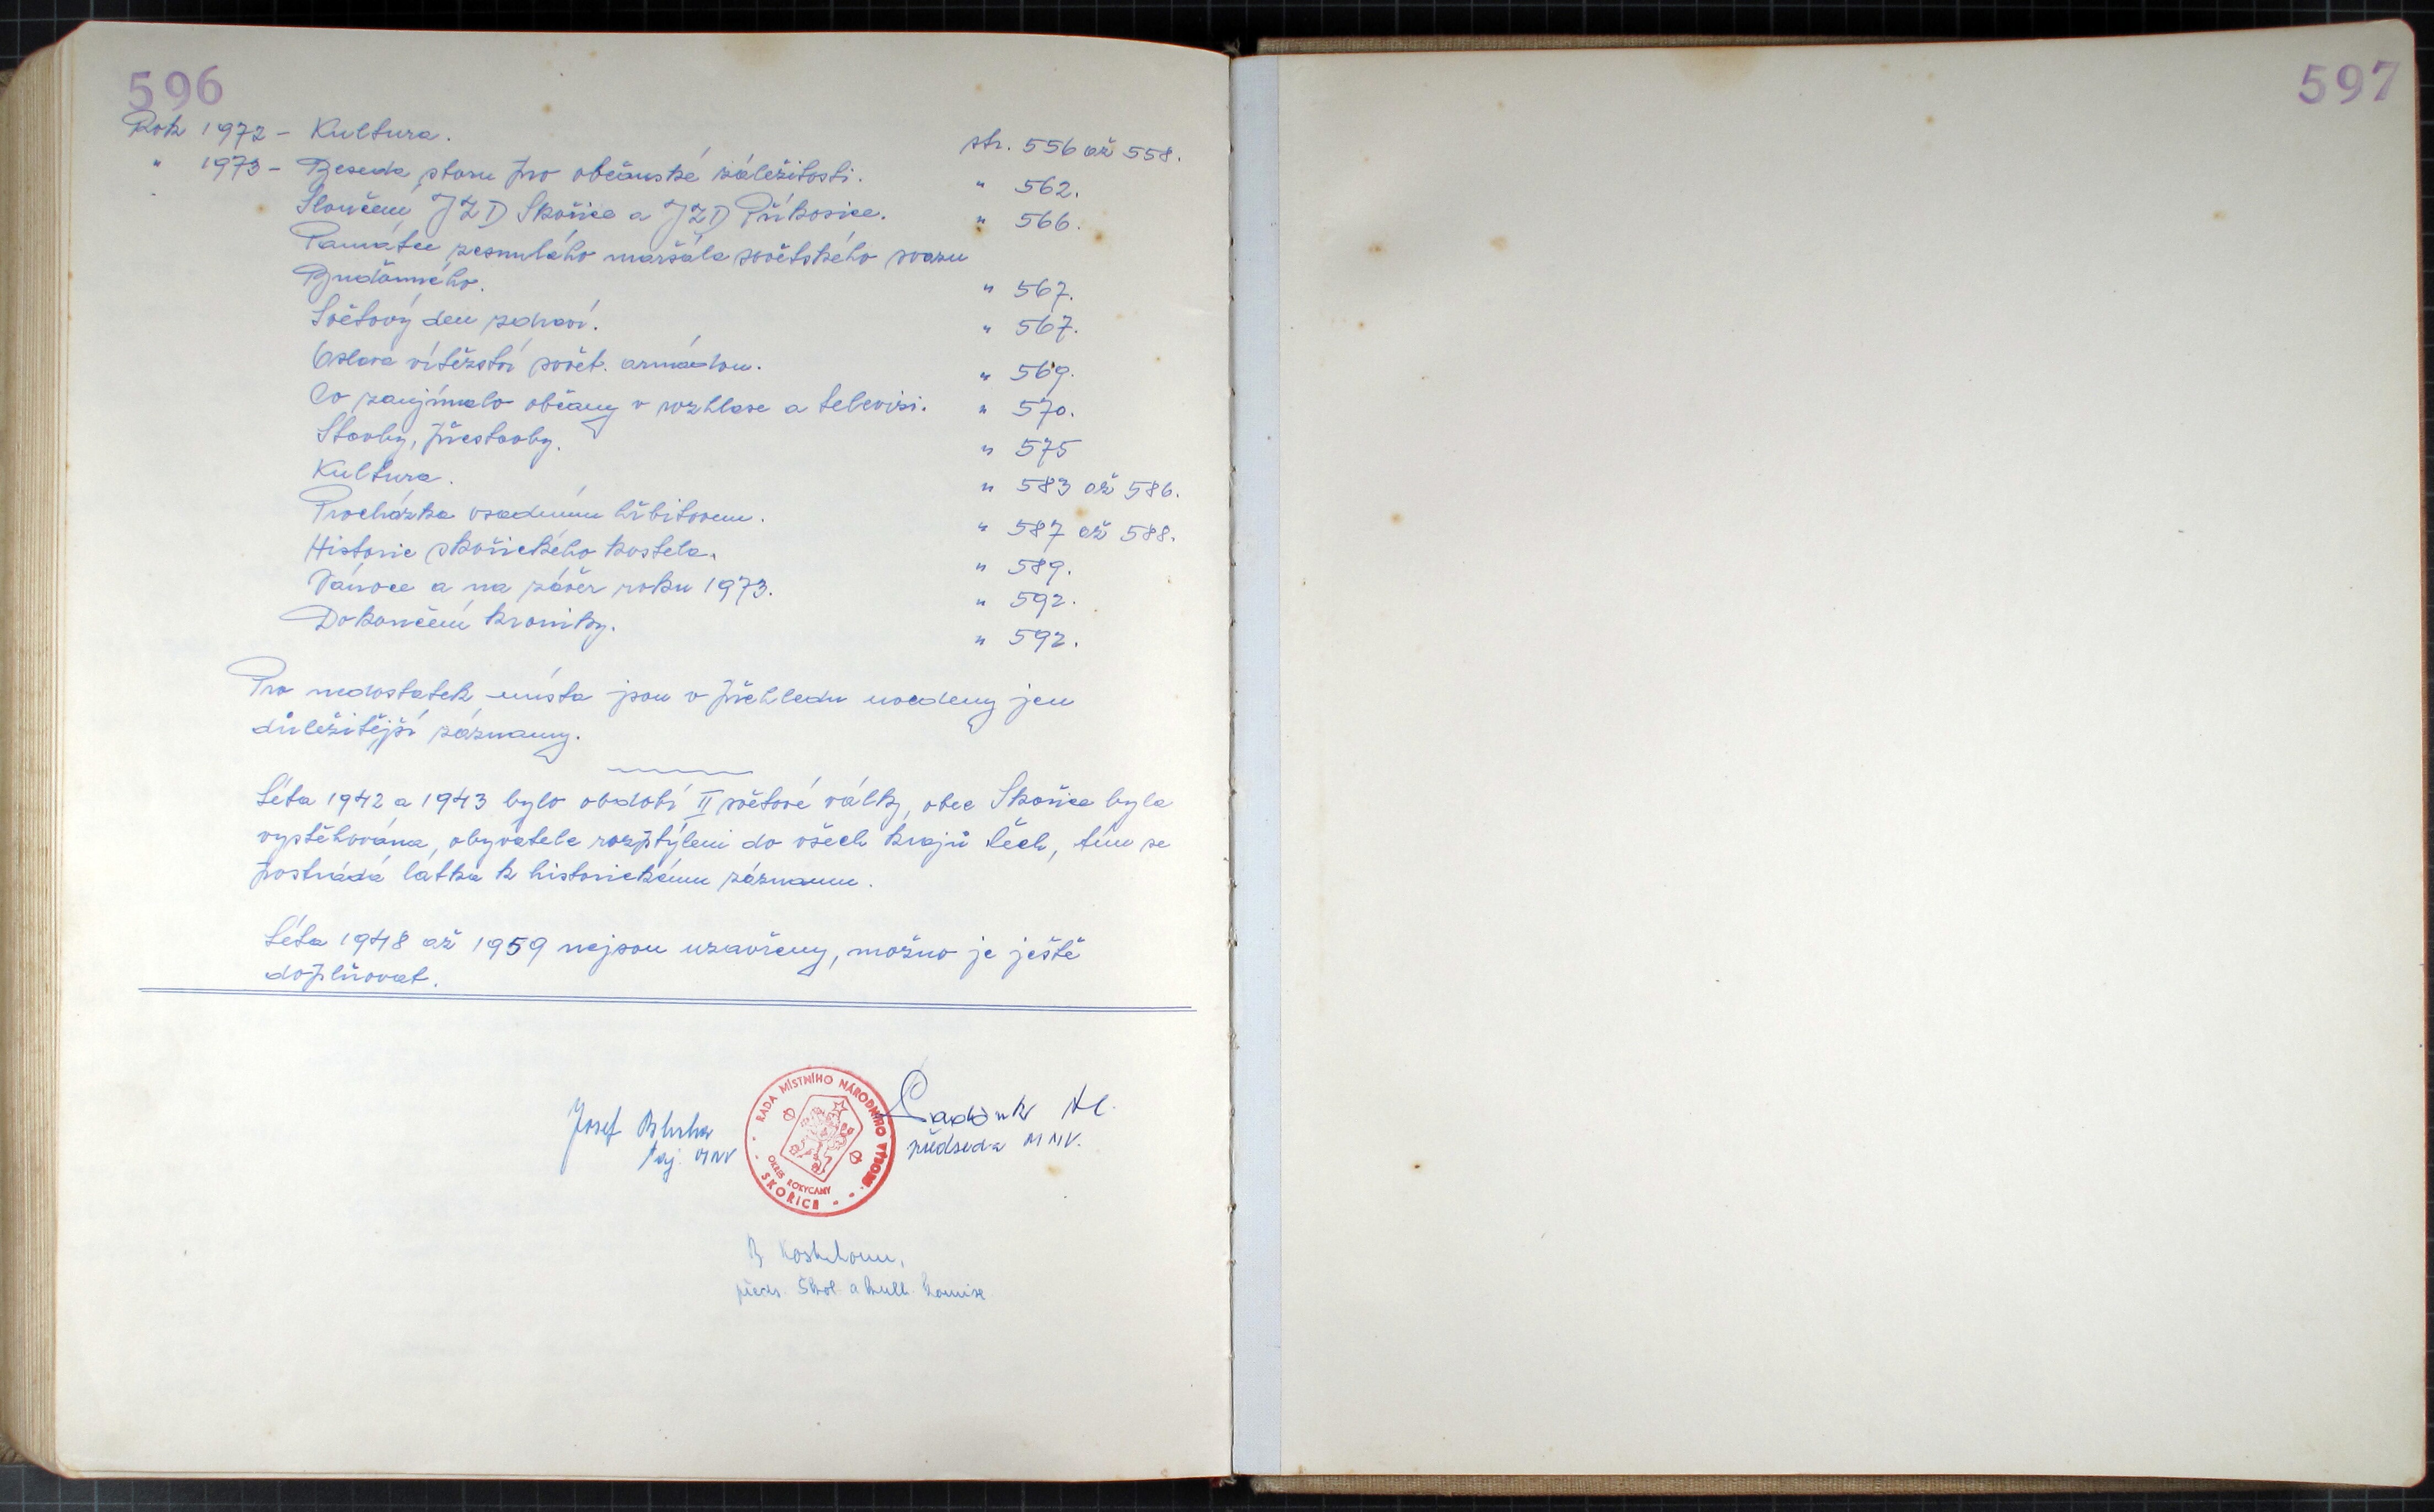 596
Rok 1972 - Kultura. str. 556 až 558.
" 1973 - Beseda sboru pro občanské záležitosti. " 562.
Sloučení JZD Skořice a JZD Příkosice. " 566.
Památce zesnulého maršála sovětského svazu
Buďonného. " 567.
Světový den zdraví. " 567.
Oslava vítězství sovět. armádou. " 569.
Co zaujímalo občany v rozhlase a televisi. " 570.
Stavby, přestavby. " 575
Kultura. " 583 až 586.
Procházka osadním hřbitovem. " 587 až 588.
Historie skořického kostela. " 589.
Vánoce a na závěr roku 1973. " 592.
Dokončení kroniky. " 592.
Pro nedostatek místa jsou v přehledu uvedeny jen
důležitější záznamy.
Léta 1942 a 1943 bylo období II světové války, obec Skořice byla
vystěhována, obyvatele rozptýleni do všech krajů Čech, tím se
postrádá látka k historickému záznamu.
Léta 1948 až 1959 nejsou uzavřeny, možno je ještě
doplňovat.
Josef
taj. MNV
RADA MÍSTNÍHO NÁRODNÍHO VÝBORU
OKRES ROKYCANY
SKOŘICE
předseda MNV.
B
předs. škol. a kult. komise
597